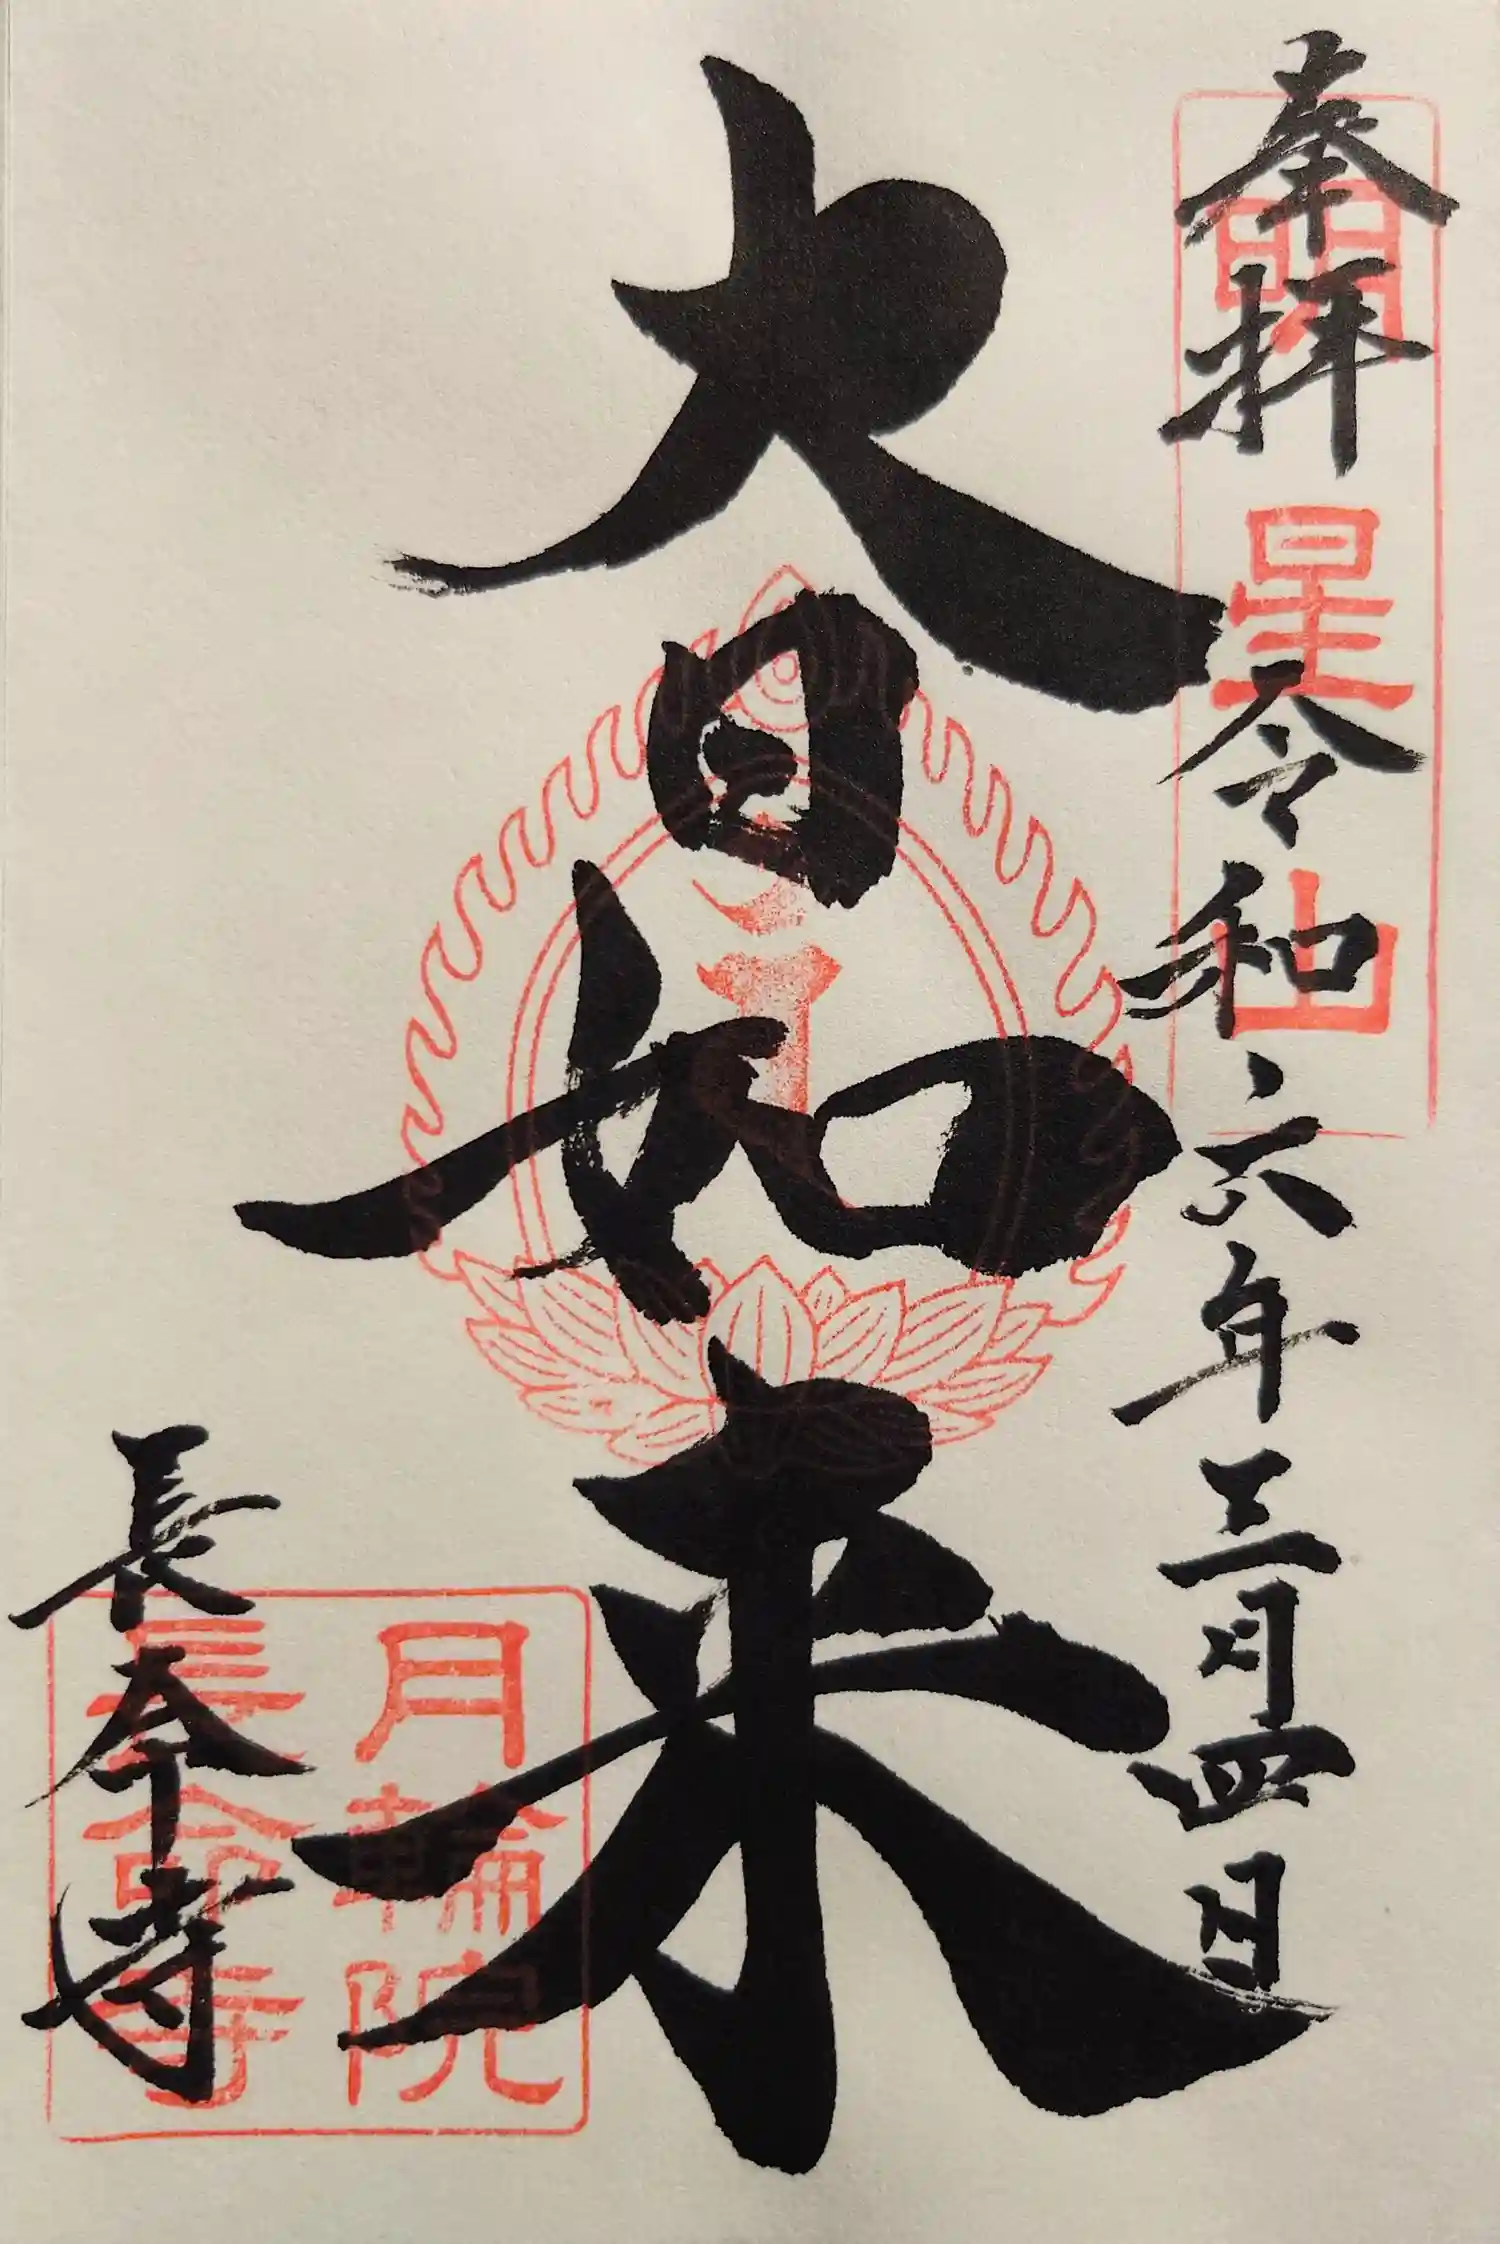 奉拝
令和六年三月四日
明星山
大日如来
月輪院
長命寺
長命寺